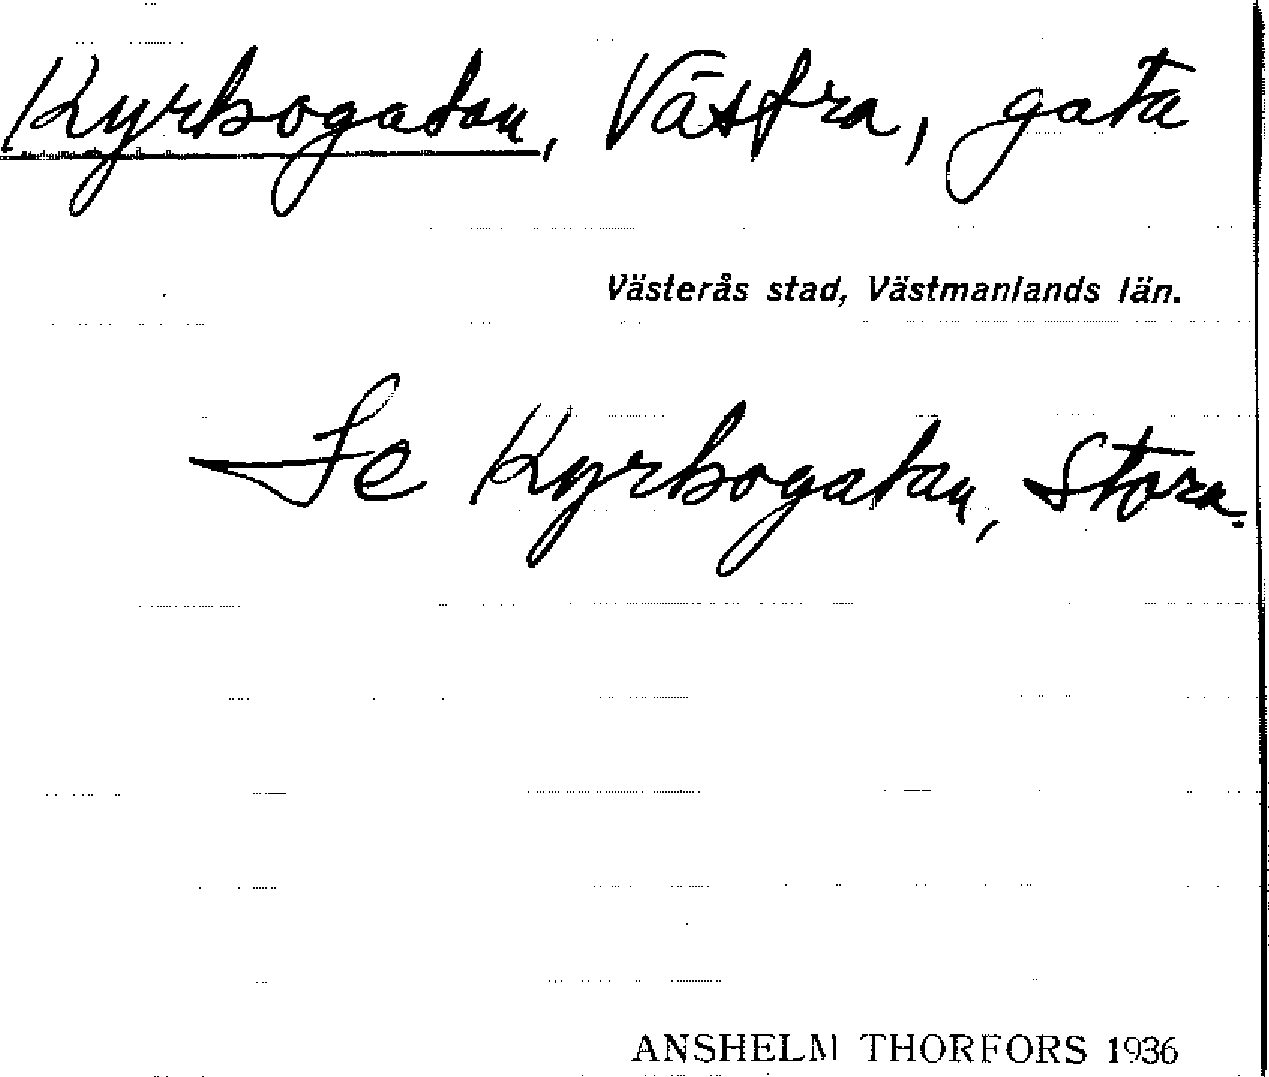 Kyrbogatan, Västra, gata
Västerås stad, Västmanlands län.
Se Kyrbogatan, Stora.
ANSHELM THORFORS 1936